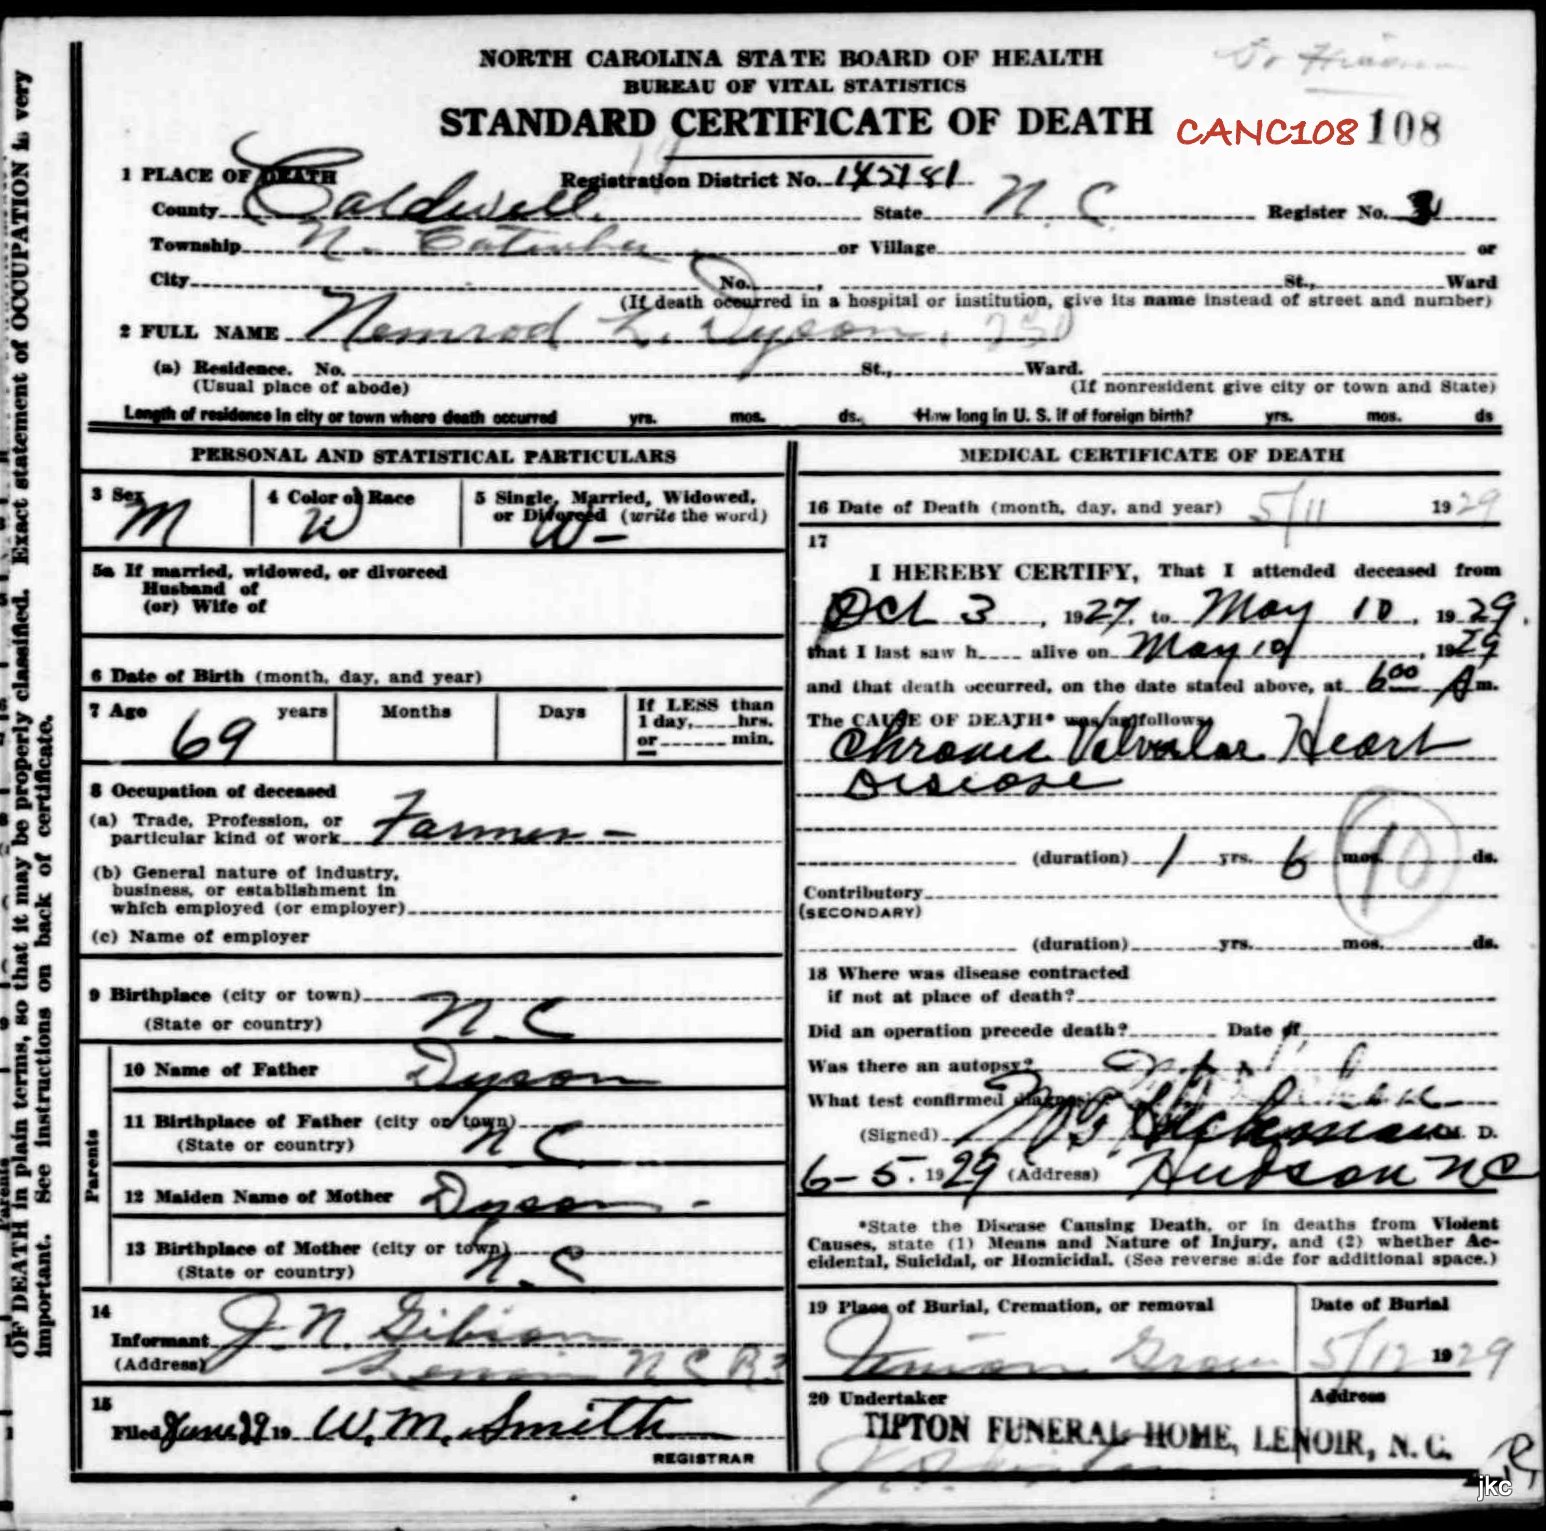 NORTH CAROLINA STATE BOARD OF HEALTH
BUREAU OF VITAL STATISTICS
STANDARD CERTIFICATE OF DEATH CANC108 108
1 PLACE OF DEATH Registration District No.
County Caldwell State N. C. Register No.
Township N. Catawba or Village or
City No. St., Ward
(If death occurred in a hospital or institution, give its name instead of street and number)
2 FULL NAME Nemrod L. Dyson.
(a) Residence. No. St., Ward.
(Usual place of abode) (If nonresident give city or town and State)
Length of residence in city or town where death occurred yrs. mos. ds. How long in U. S. if of foreign birth? yrs. mos. ds
PERSONAL AND STATISTICAL PARTICULARS
3 Sex 4 Color or Race 5 Single, Married, Widowed,
or Divorced (write the word)
M W W-
5a If married, widowed, or divorced
Husband of
(or) Wife of
6 Date of Birth (month, day, and year)
7 Age years Months Days If LESS than
1 day, hrs.
or min.
69
8 Occupation of deceased
(a) Trade, Profession, or
particular kind of work Farmer -
(b) General nature of industry,
business, or establishment in
which employed (or employer)
(c) Name of employer
9 Birthplace (city or town)
(State or country) N. C
Parents
10 Name of Father Dyson
11 Birthplace of Father (city or town)
(State or country) N. C.
12 Maiden Name of Mother Dyson -
13 Birthplace of Mother (city or town)
(State or country) N. C
14
Informant J. N. Gibson
(Address) Lenoir N C R.3
15
Filed June 29 19 W. M. Smith
REGISTRAR
MEDICAL CERTIFICATE OF DEATH
16 Date of Death (month, day, and year) 5/11 1929
17
I HEREBY CERTIFY, That I attended deceased from
Oct 3, 1927, to May 10, 1929.
that I last saw h alive on May 10, 1929
and that death occurred, on the date stated above, at 6 00 A m.
The CAUSE OF DEATH* was as follows:
Chronic Valvular Heart
Disease
(duration) 1 yrs. 6 mos. ds.
90
Contributory
(SECONDARY)
(duration) yrs. mos. ds.
18 Where was disease contracted
if not at place of death?
Did an operation precede death? Date of
Was there an autopsy?
What test confirmed diagnosis?
(Signed) Hickman M. D.
6-5. 1929 (Address) Hudson N C
*State the Disease Causing Death, or in deaths from Violent
Causes, state (1) Means and Nature of Injury, and (2) whether Ac-
cidental, Suicidal, or Homicidal. (See reverse side for additional space.)
19 Place of Burial, Cremation, or removal Date of Burial
Union Grove 5/12 1929
20 Undertaker Address
TIPTON FUNERAL HOME, LENOIR, N. C.
jkc
OF DEATH in plain terms, so that it may be properly classified. Exact statement of OCCUPATION is very
important. See instructions on back of certificate.